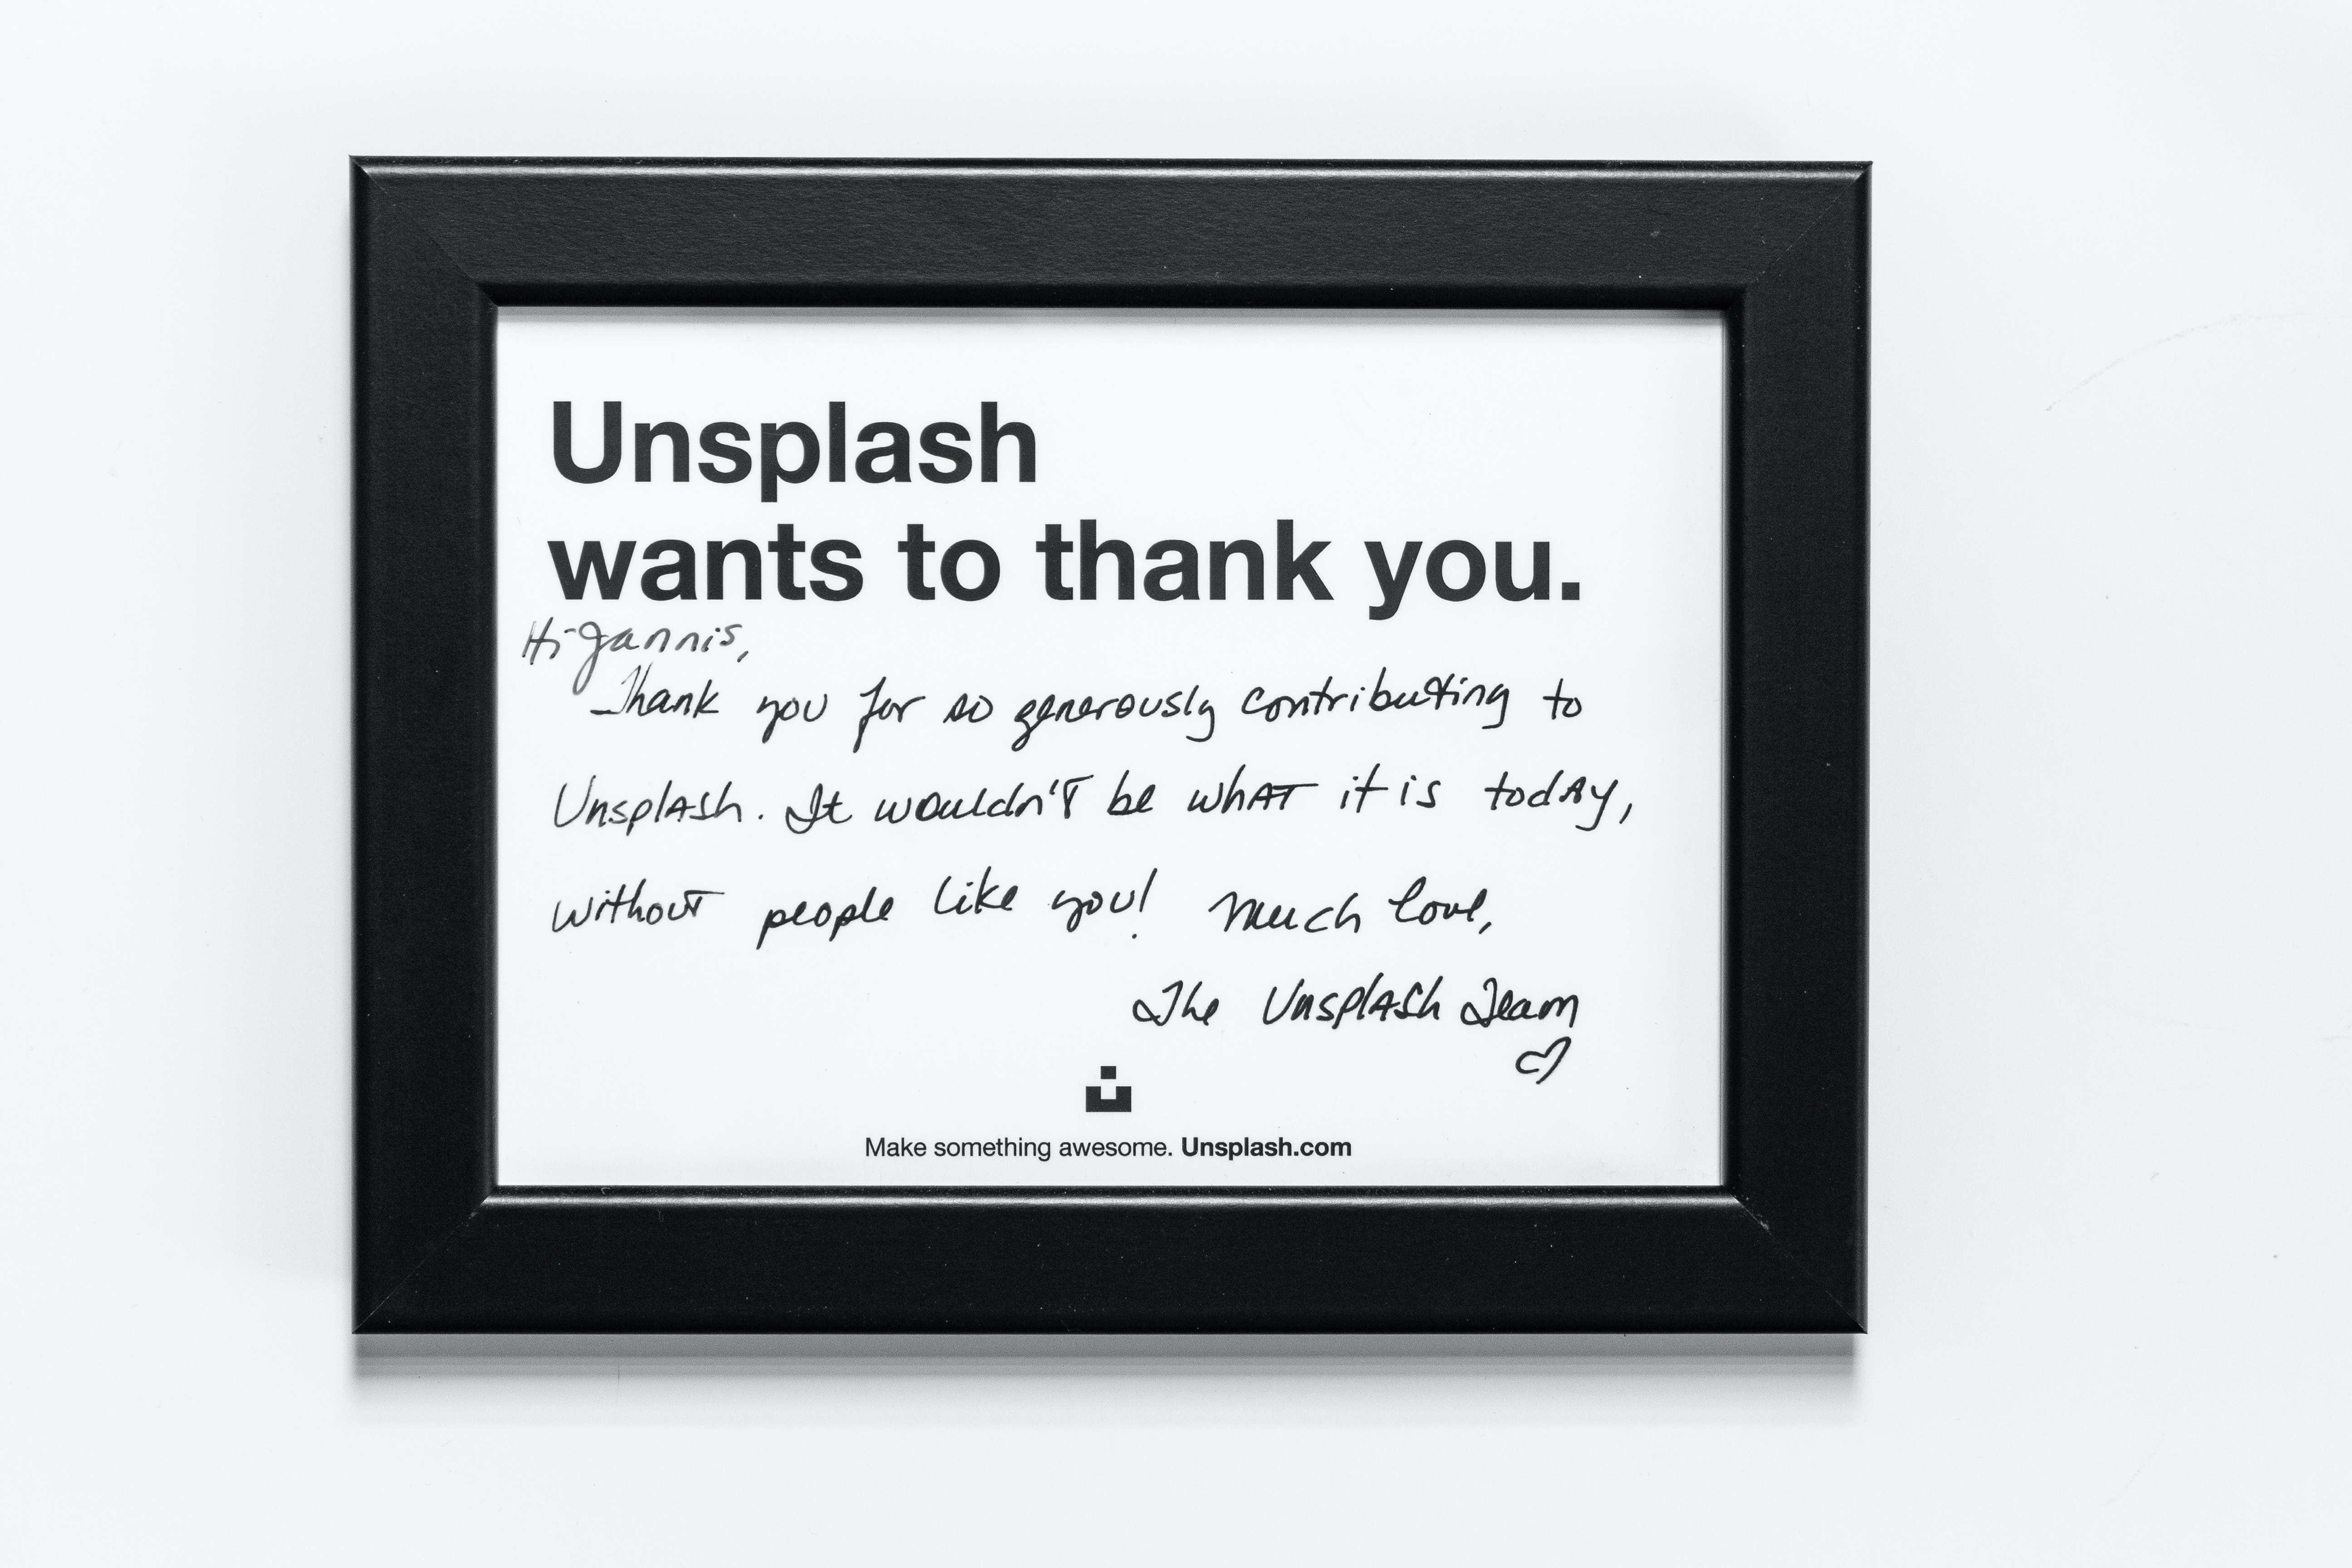 Unsplash
wants to thank you.
Hi Jannis,
Thank you for so generously contributing to
Unsplash. It wouldn't be what it is today,
without people like you! Much love,
The Unsplash Team
Make something awesome. Unsplash.com